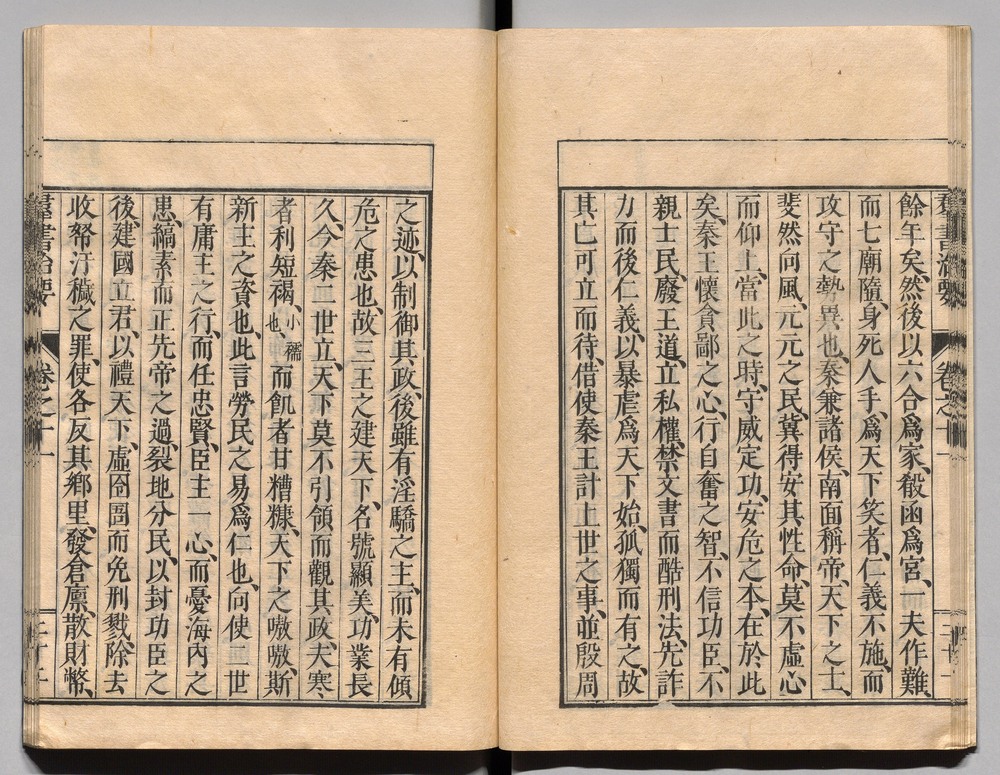 餘年矣、然後以六合爲家、殽函爲宮、一夫作難、
而七廟隳、身死人手、爲天下笑者、仁義不施、而
攻守之勢異也、秦兼諸侯、南面稱帝、天下之士、
斐然向風、元元之民、冀得安其性命、莫不虛心
而仰上、當此之時、守威定功、安危之本、在於此
矣、秦王懷貪鄙之心、行自奮之智、不信功臣、不
親士民、廢王道、立私權、禁文書而酷刑法、先詐
力而後仁義、以暴虐爲天下始、孤獨而有之、故
其亡可立而待、借使秦王計上世之事、並殷周
之迹、以制御其政、後雖有淫驕之主、而未有傾
危之患也、故三王之建天下、名號顯美、功業長
久、今秦二世立、天下莫不引領而觀其政、夫寒
者利短褐、小襦也、而飢者甘糟糠、天下之嗷嗷、斯
新主之資也、此言勞民之易爲仁也、向使二世
有庸主之行、而任忠賢、臣主一心、而憂海內之
患、縞素而正先帝之過、裂地分民、以封功臣之
後、建國立君、以禮天下、虛囹圄而免刑戮、除去
收帑汙穢之罪、使各反其鄉里、發倉廩、散財幣、
羣書治要 卷之十一